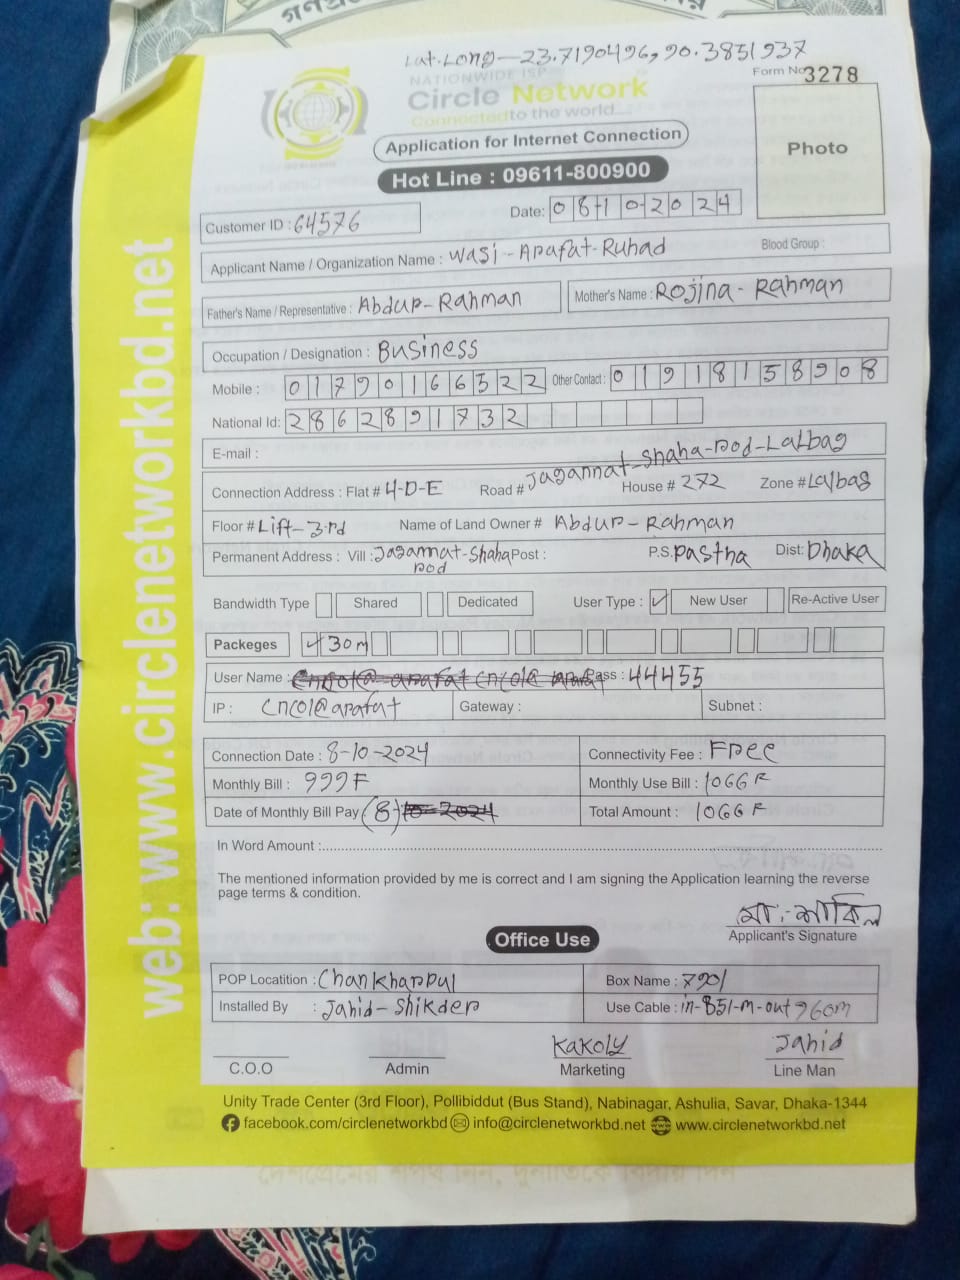 Lat.Long-23.7190496,90.3851937
NATIONWIDE ISP
Circle Network
Connected to the world...
Form No 3278
Application for Internet Connection
Photo
Hot Line : 09611-800900
Customer ID : 64576
Date: 08-10-2024
Applicant Name / Organization Name : Wasi-Arafat-Ruhad Blood Group :
Father's Name / Representative : Abdur-Rahman Mother's Name : Rojina-Rahman
Occupation / Designation : Business
Mobile : 01790166522 Other Contact : 01918158908
National Id: 2862891732
E-mail :
Connection Address : Flat # 4-D-E Road # Jagannat-Shaha-Rod-Lalbag House # 272 Zone # Lalbag
Floor # Lift-3rd Name of Land Owner # Abdur-Rahman
Permanent Address : Vill : Jagannat-Shaha Rod Post : P.S. Dist: Dhaka
Bandwidth Type Shared Dedicated User Type : ✓ New User Re-Active User
Packeges ✓ 30m
User Name : Pass : 44455
IP : cncl@arafat Gateway : Subnet :
Connection Date : 8-10-2024 Connectivity Fee : Free
Monthly Bill : 999 Monthly Use Bill : 1066
Date of Monthly Bill Pay (8) Total Amount : 1066
In Word Amount :
The mentioned information provided by me is correct and I am signing the Application learning the reverse
page terms & condition.
Applicant's Signature
Office Use
POP Locatition : Chankharpul Box Name : 790/
Installed By : Jahid-Shikder Use Cable : in-851-m-out 960m
C.O.O Admin Kakoly Marketing Jahid Line Man
Unity Trade Center (3rd Floor), Pollibiddut (Bus Stand), Nabinagar, Ashulia, Savar, Dhaka-1344
facebook.com/circlenetworkbd info@circlenetworkbd.net www.circlenetworkbd.net
web: www.circlenetworkbd.net